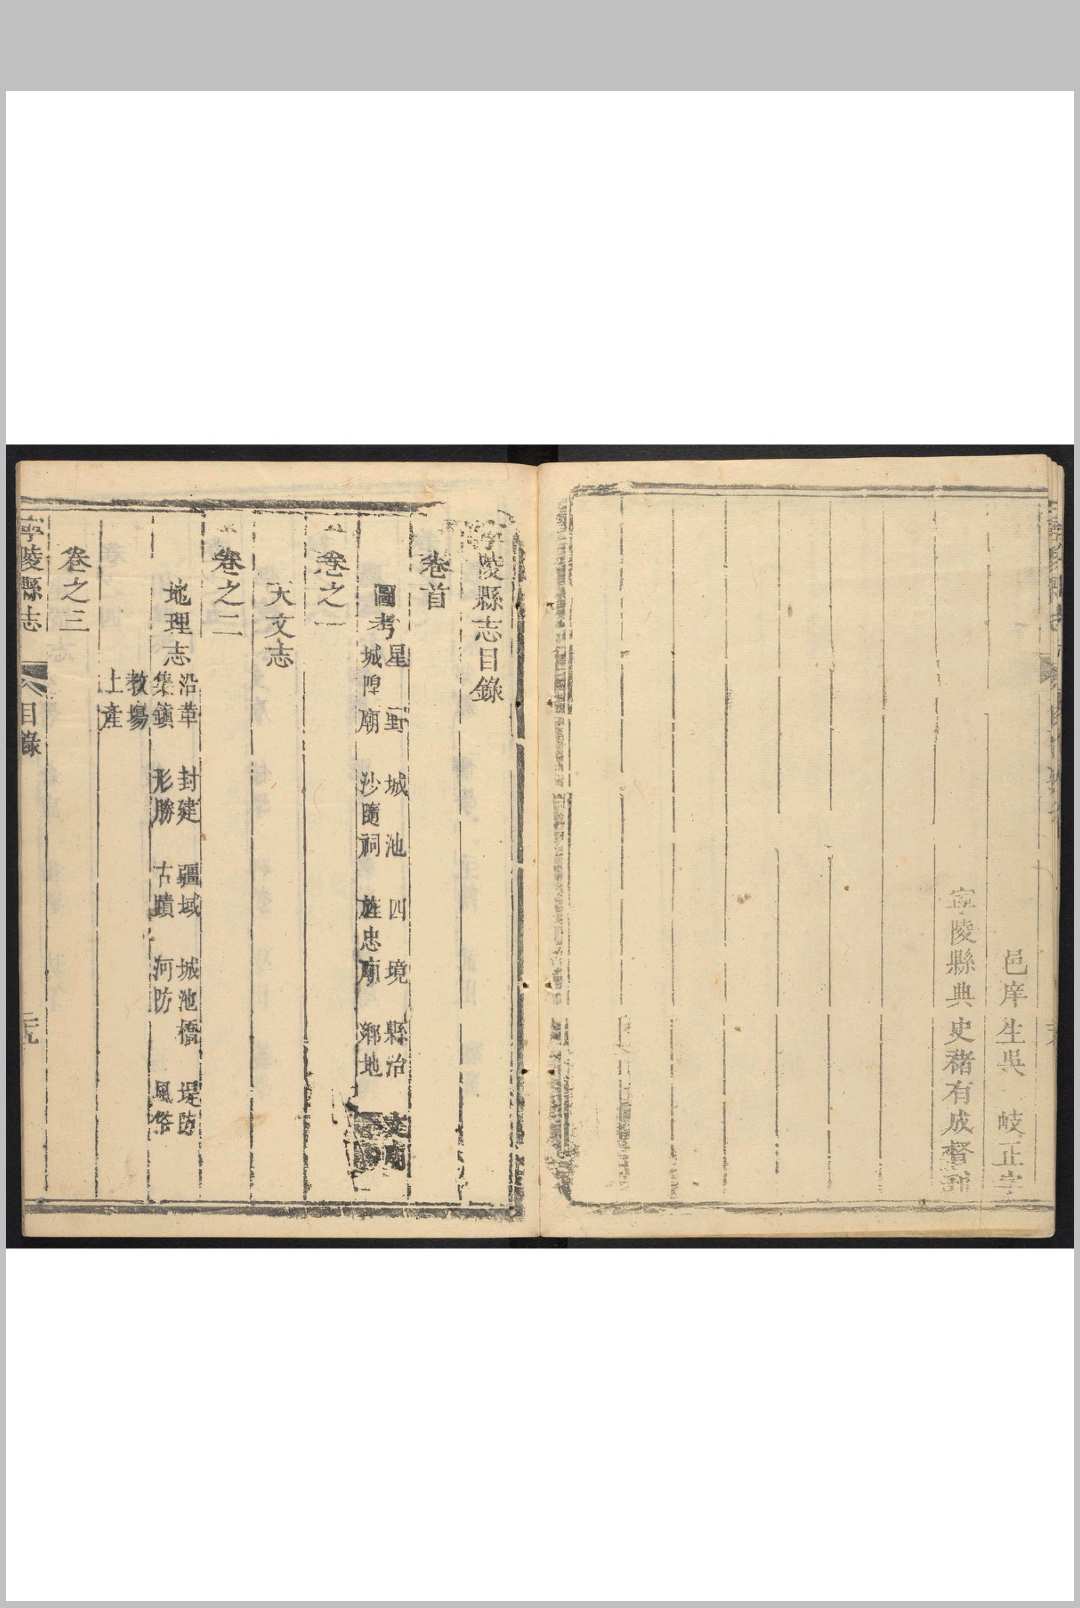 邑庠生吳　岐正字
寧陵縣典史褚有成督刊
寧陵縣志目錄
卷首
圖考
星野　城池　四境　縣治　文廟
城隍廟　沙隨祠　旌忠廟　鄉地
卷之一
天文志
卷之二
地理志
沿革　封建　疆域　城池橋　堤防
集鎮　形勝　古蹟　河防　風俗
教場
土產
卷之三
寧陵縣志　目錄